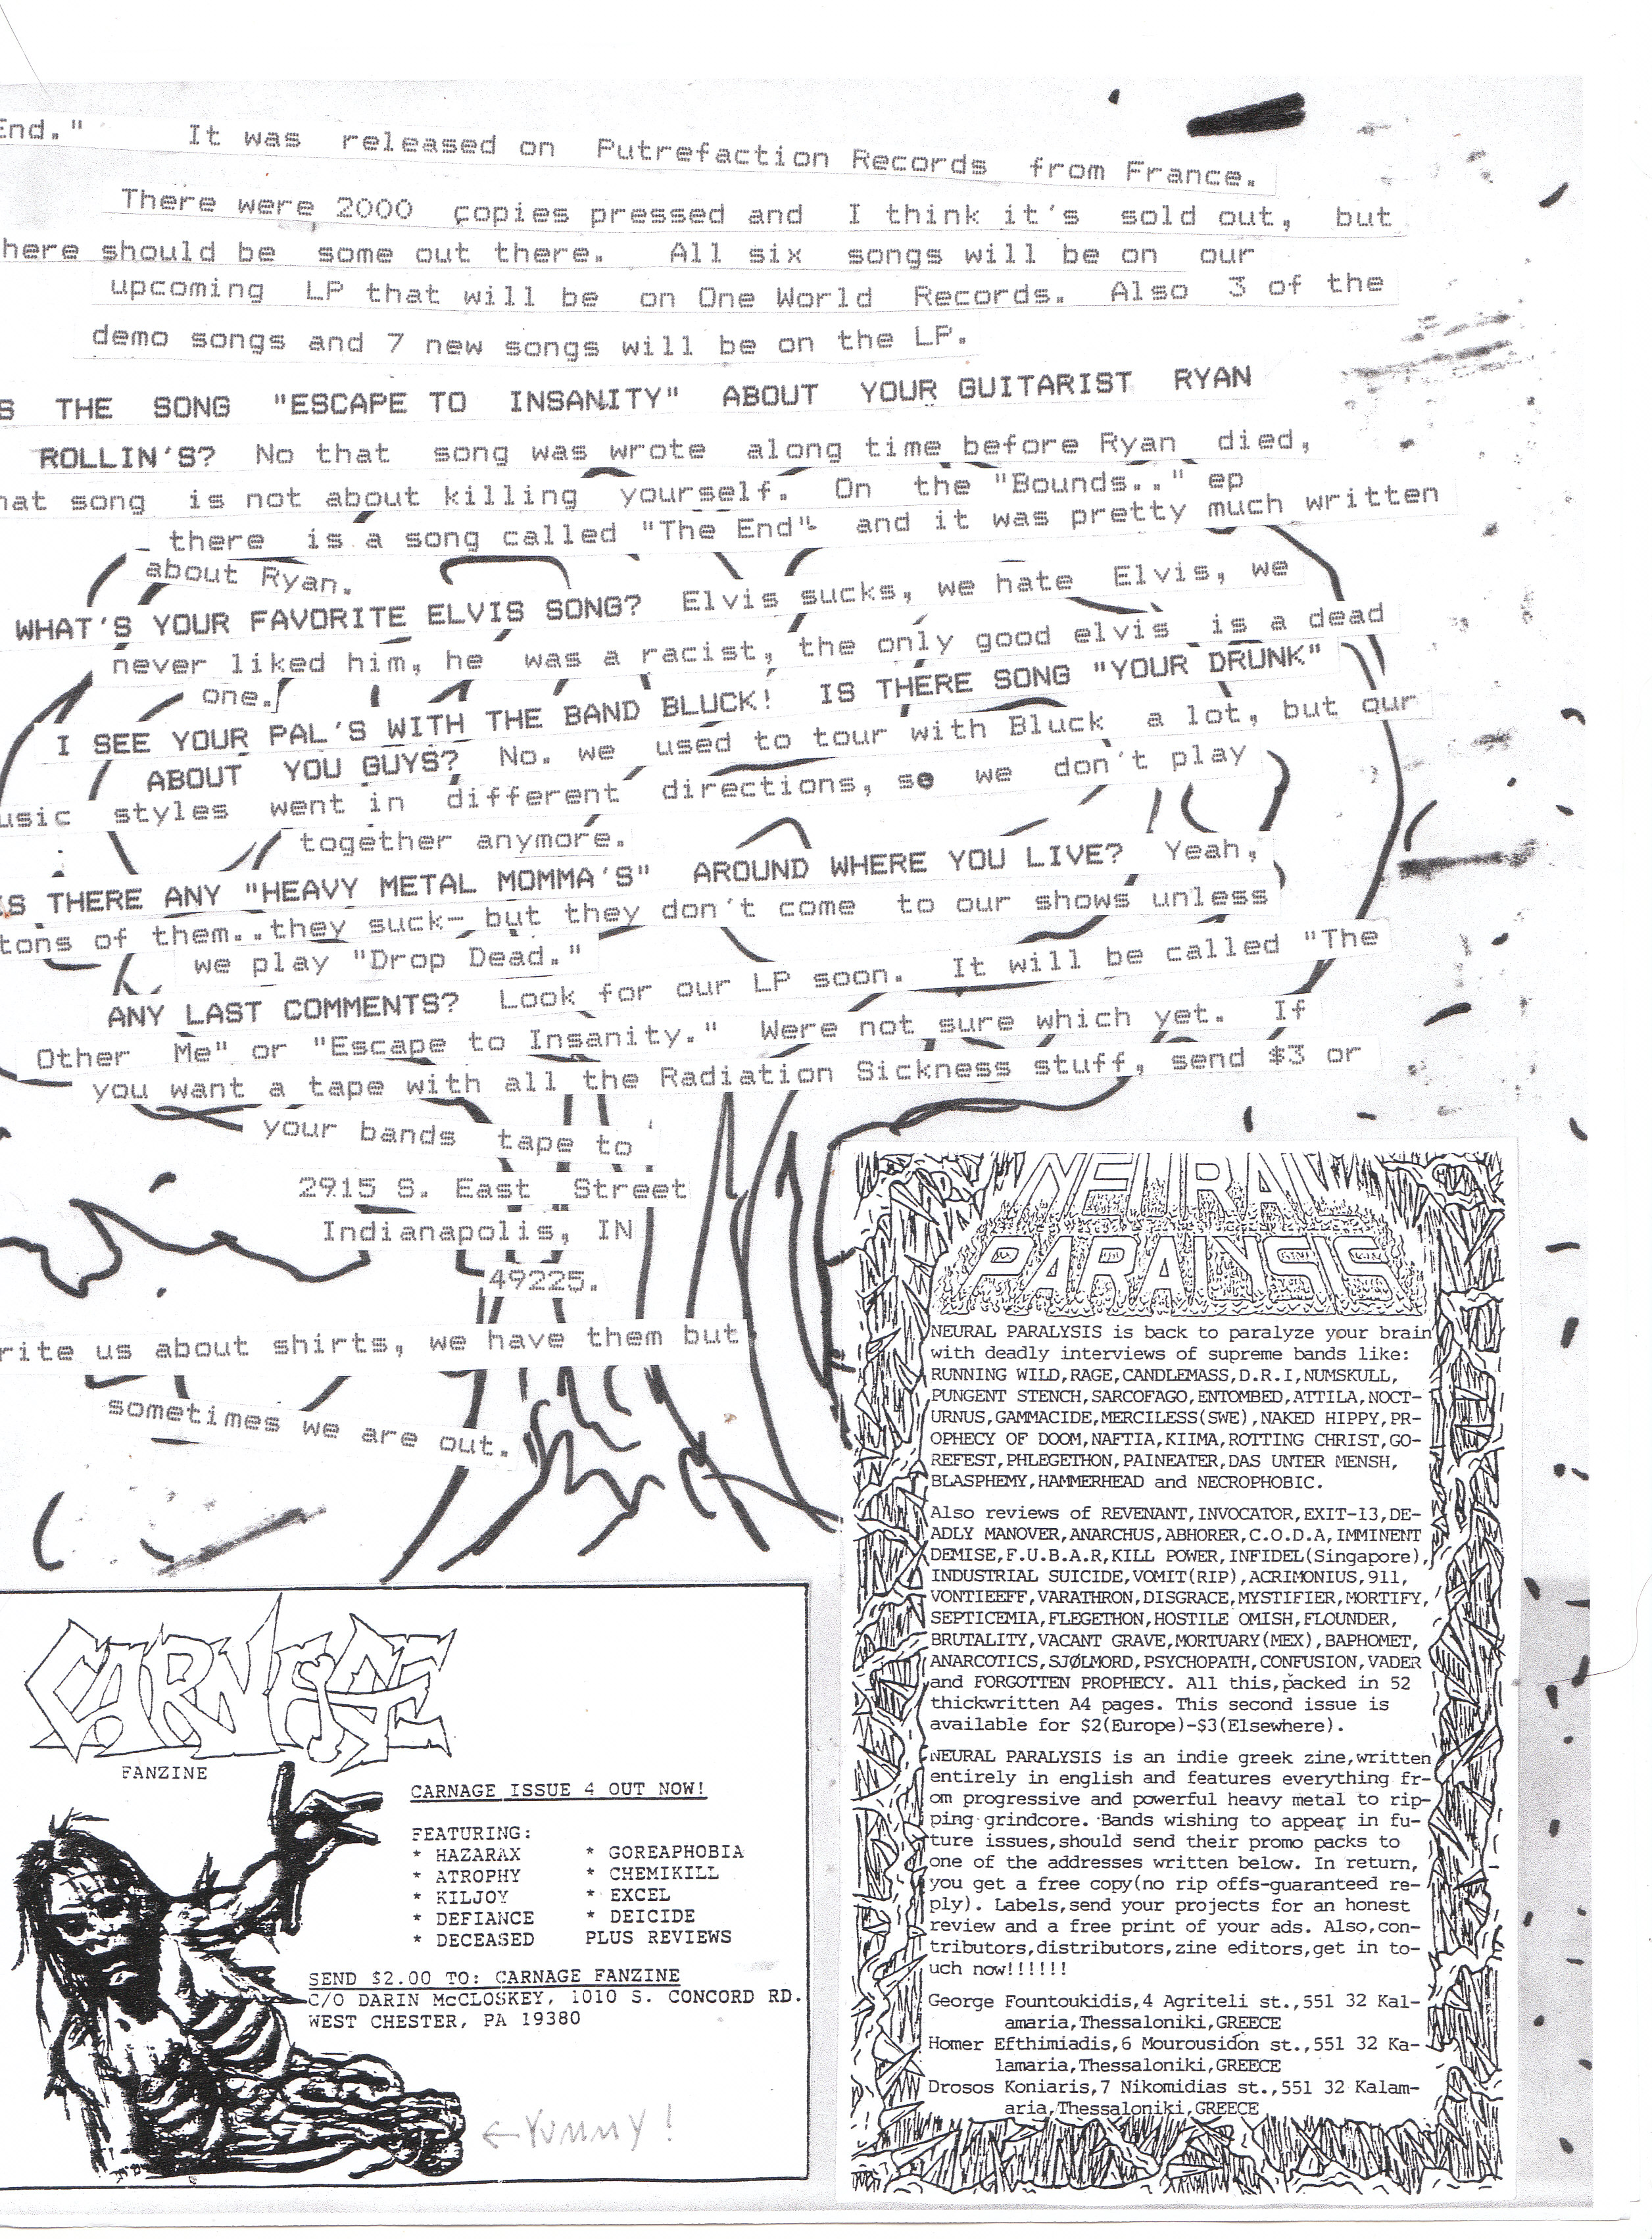 End."     It was released on Putrefaction Records from France.
There were 2000 copies pressed and I think it's sold out, but
here should be some out there. All six songs will be on our
upcoming LP that will be on One World Records. Also 3 of the
demo songs and 7 new songs will be on the LP.
S THE SONG "ESCAPE TO INSANITY" ABOUT YOUR GUITARIST RYAN
ROLLIN'S? No that song was wrote along time before Ryan died,
hat song is not about killing yourself. On the "Bounds.." ep
there is a song called "The End" and it was pretty much written
about Ryan.
WHAT'S YOUR FAVORITE ELVIS SONG? Elvis sucks, we hate Elvis, we
never liked him, he was a racist, the only good elvis is a dead
one.
I SEE YOUR PAL'S WITH THE BAND BLUCK! IS THERE SONG "YOUR DRUNK"
ABOUT YOU GUYS? No. we used to tour with Bluck a lot, but our
usic styles went in different directions, so we don't play
together anymore.
IS THERE ANY "HEAVY METAL MOMMA'S" AROUND WHERE YOU LIVE? Yeah,
tons of them..they suck- but they don't come to our shows unless
we play "Drop Dead."
ANY LAST COMMENTS? Look for our LP soon. It will be called "The
Other Me" or "Escape to Insanity." Were not sure which yet. If
you want a tape with all the Radiation Sickness stuff, send $3 or
your bands tape to
2915 S. East Street
Indianapolis, IN
49225.
rite us about shirts, we have them but
sometimes we are out.
NEURAL
PARALYSIS
NEURAL PARALYSIS is back to paralyze your brain
with deadly interviews of supreme bands like:
RUNNING WILD,RAGE,CANDLEMASS,D.R.I,NUMSKULL,
PUNGENT STENCH,SARCOFAGO,ENTOMBED,ATTILA,NOCT-
URNUS,GAMMACIDE,MERCILESS(SWE),NAKED HIPPY,PR-
OPHECY OF DOOM,NAFTIA,KIIMA,ROTTING CHRIST,GO-
REFEST,PHLEGETHON,PAINEATER,DAS UNTER MENSH,
BLASPHEMY,HAMMERHEAD and NECROPHOBIC.
Also reviews of REVENANT,INVOCATOR,EXIT-13,DE-
ADLY MANOVER,ANARCHUS,ABHORER,C.O.D.A,IMMINENT
DEMISE,F.U.B.A.R,KILL POWER,INFIDEL(Singapore),
INDUSTRIAL SUICIDE,VOMIT(RIP),ACRIMONIUS,911,
VONTIEEFF,VARATHRON,DISGRACE,MYSTIFIER,MORTIFY,
SEPTICEMIA,FLEGETHON,HOSTILE OMISH,FLOUNDER,
BRUTALITY,VACANT GRAVE,MORTUARY(MEX),BAPHOMET,
ANARCOTICS,SJØLMORD,PSYCHOPATH,CONFUSION,VADER
and FORGOTTEN PROPHECY. All this,packed in 52
thickwritten A4 pages. This second issue is
available for $2(Europe)-$3(Elsewhere).
NEURAL PARALYSIS is an indie greek zine,written
entirely in english and features everything fr-
om progressive and powerful heavy metal to rip-
ping grindcore. Bands wishing to appear in fu-
ture issues,should send their promo packs to
one of the addresses written below. In return,
you get a free copy(no rip offs-guaranteed re-
ply). Labels,send your projects for an honest
review and a free print of your ads. Also,con-
tributors,distributors,zine editors,get in to-
uch now!!!!!!
George Fountoukidis,4 Agriteli st.,551 32 Kal-
amaria,Thessaloniki,GREECE
Homer Efthimiadis,6 Mourousidon st.,551 32 Ka-
lamaria,Thessaloniki,GREECE
Drosos Koniaris,7 Nikomidias st.,551 32 Kalam-
aria,Thessaloniki,GREECE
CARNAGE
FANZINE
CARNAGE ISSUE 4 OUT NOW!
FEATURING:
* HAZARAX * GOREAPHOBIA
* ATROPHY * CHEMIKILL
* KILJOY * EXCEL
* DEFIANCE * DEICIDE
* DECEASED PLUS REVIEWS
SEND $2.00 TO: CARNAGE FANZINE
C/O DARIN McCLOSKEY, 1010 S. CONCORD RD.
WEST CHESTER, PA 19380
←YUMMY!